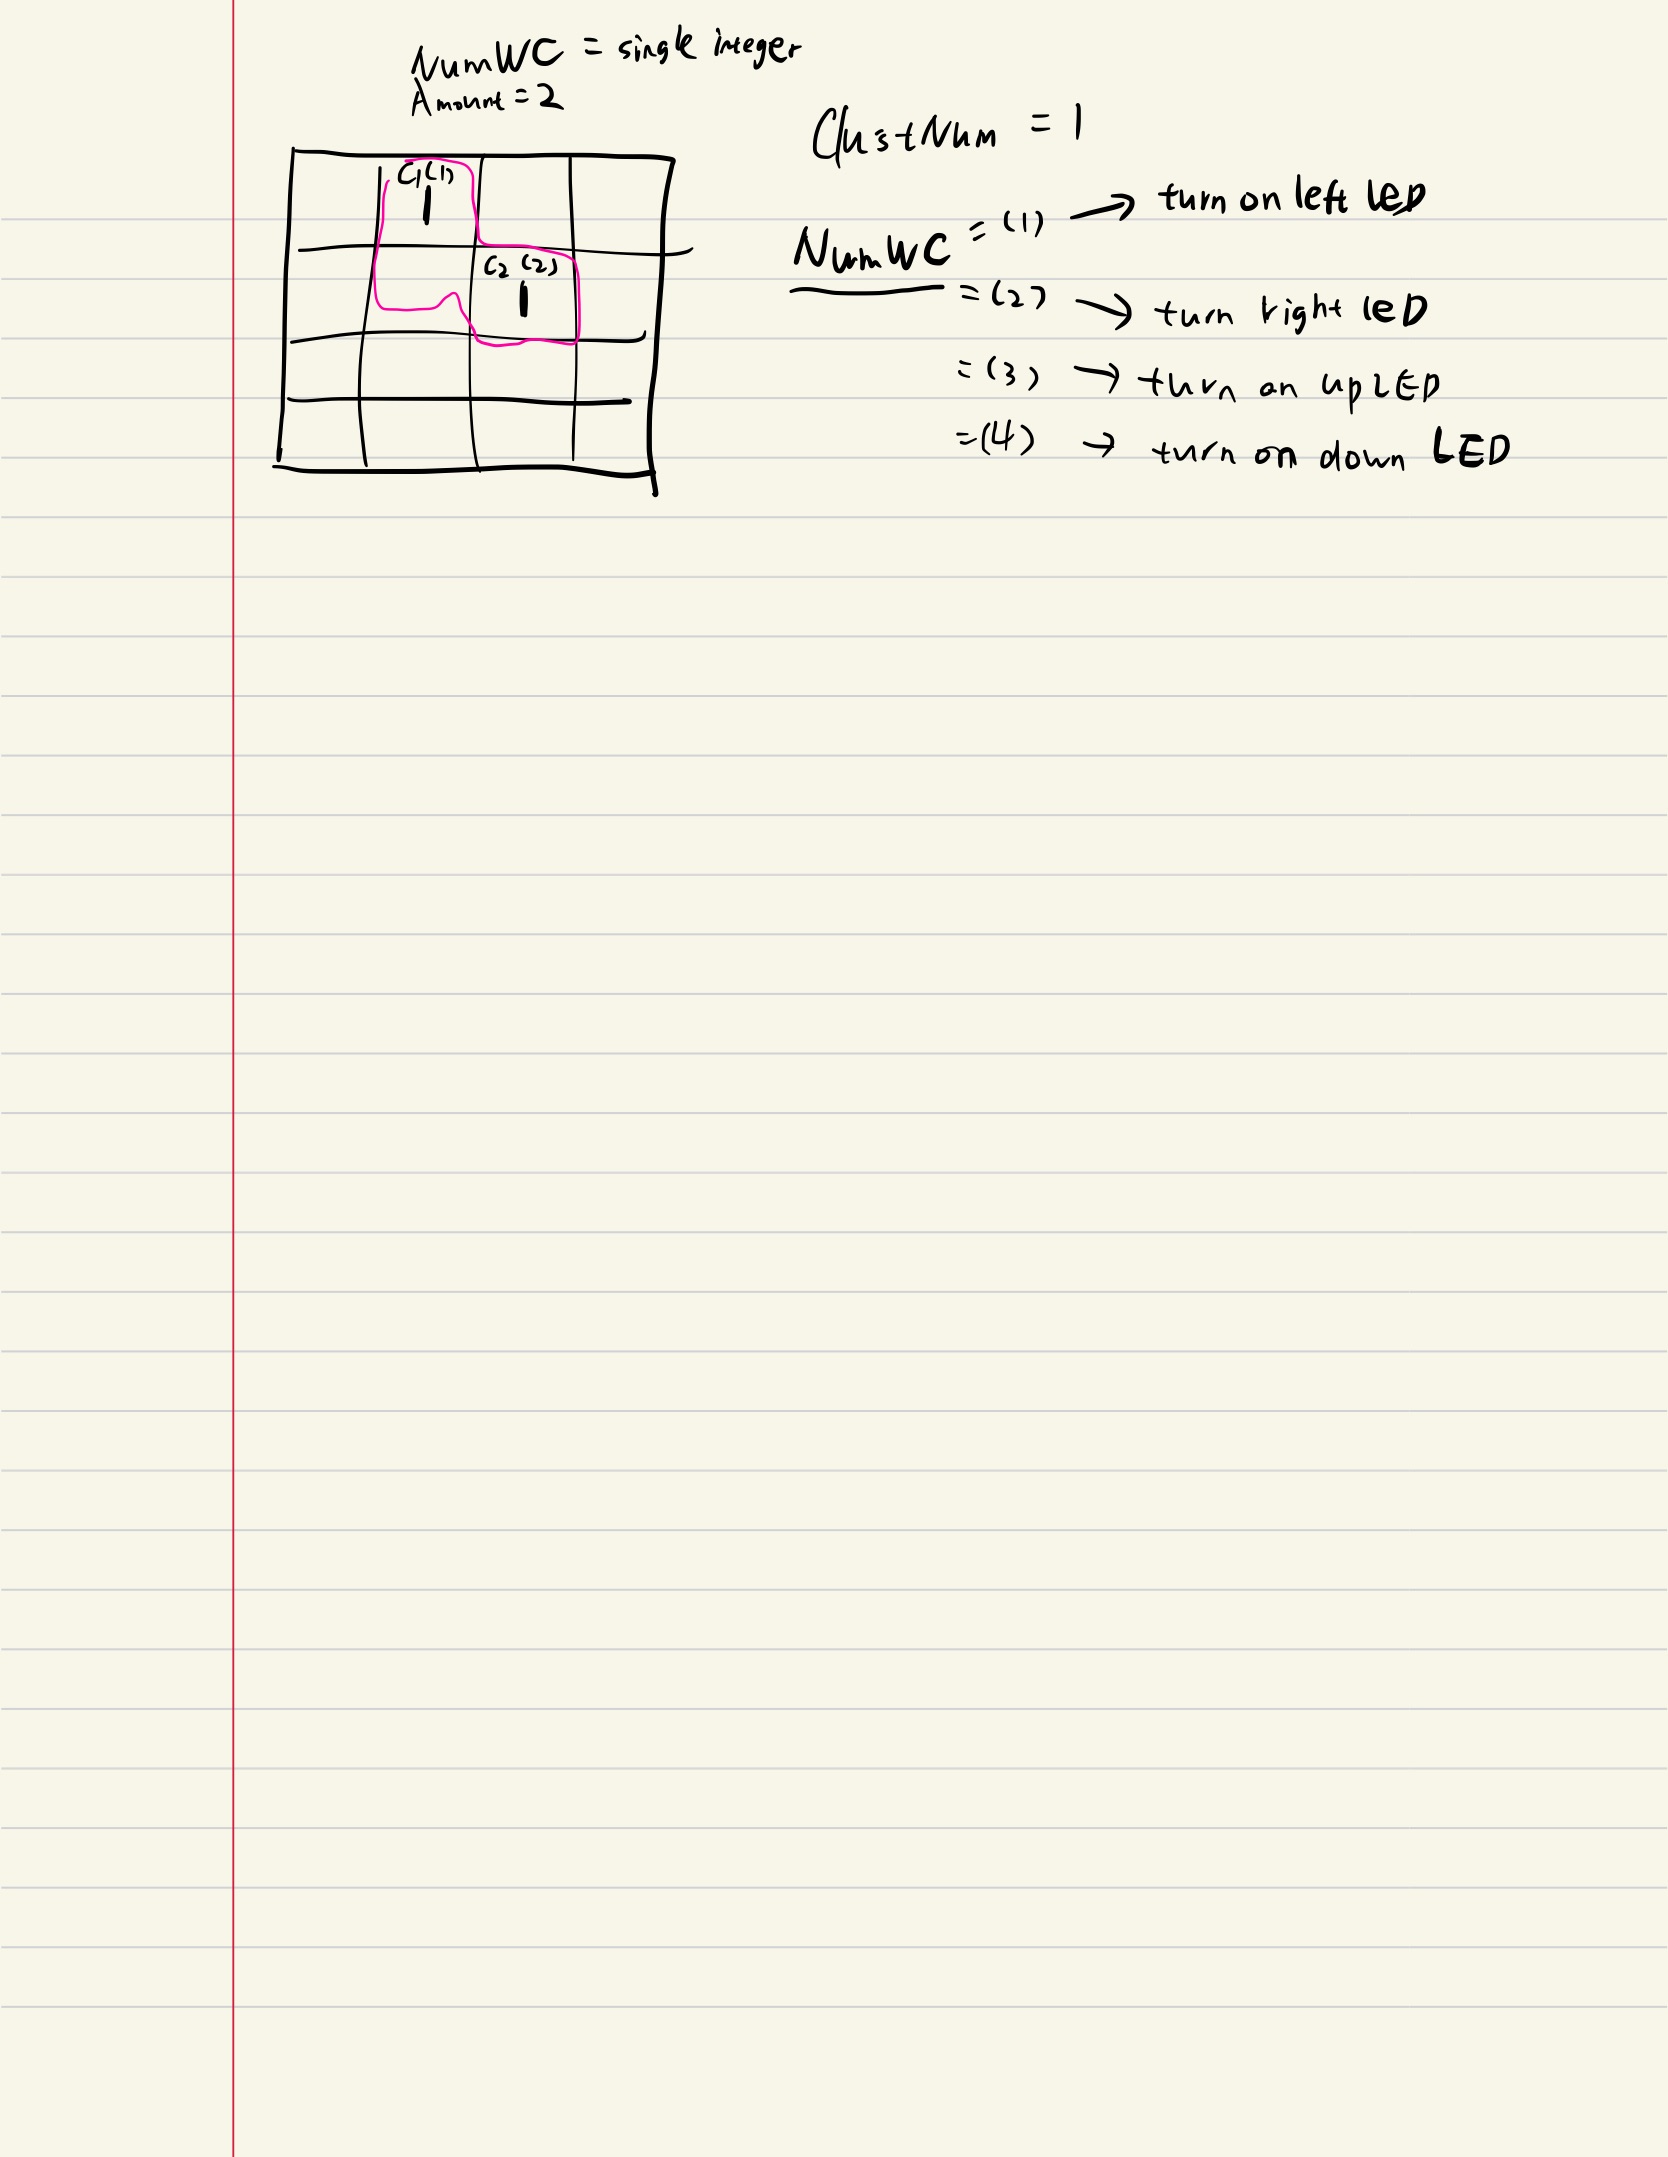 NumWC = single integer
Amount = 2
C1(1)
1
C2 (2)
1
ClustNum = 1
NumWC = (1) → turn on left LED
= (2) → turn right leD
= (3) → turn on up LED
= (4) → turn on down LED